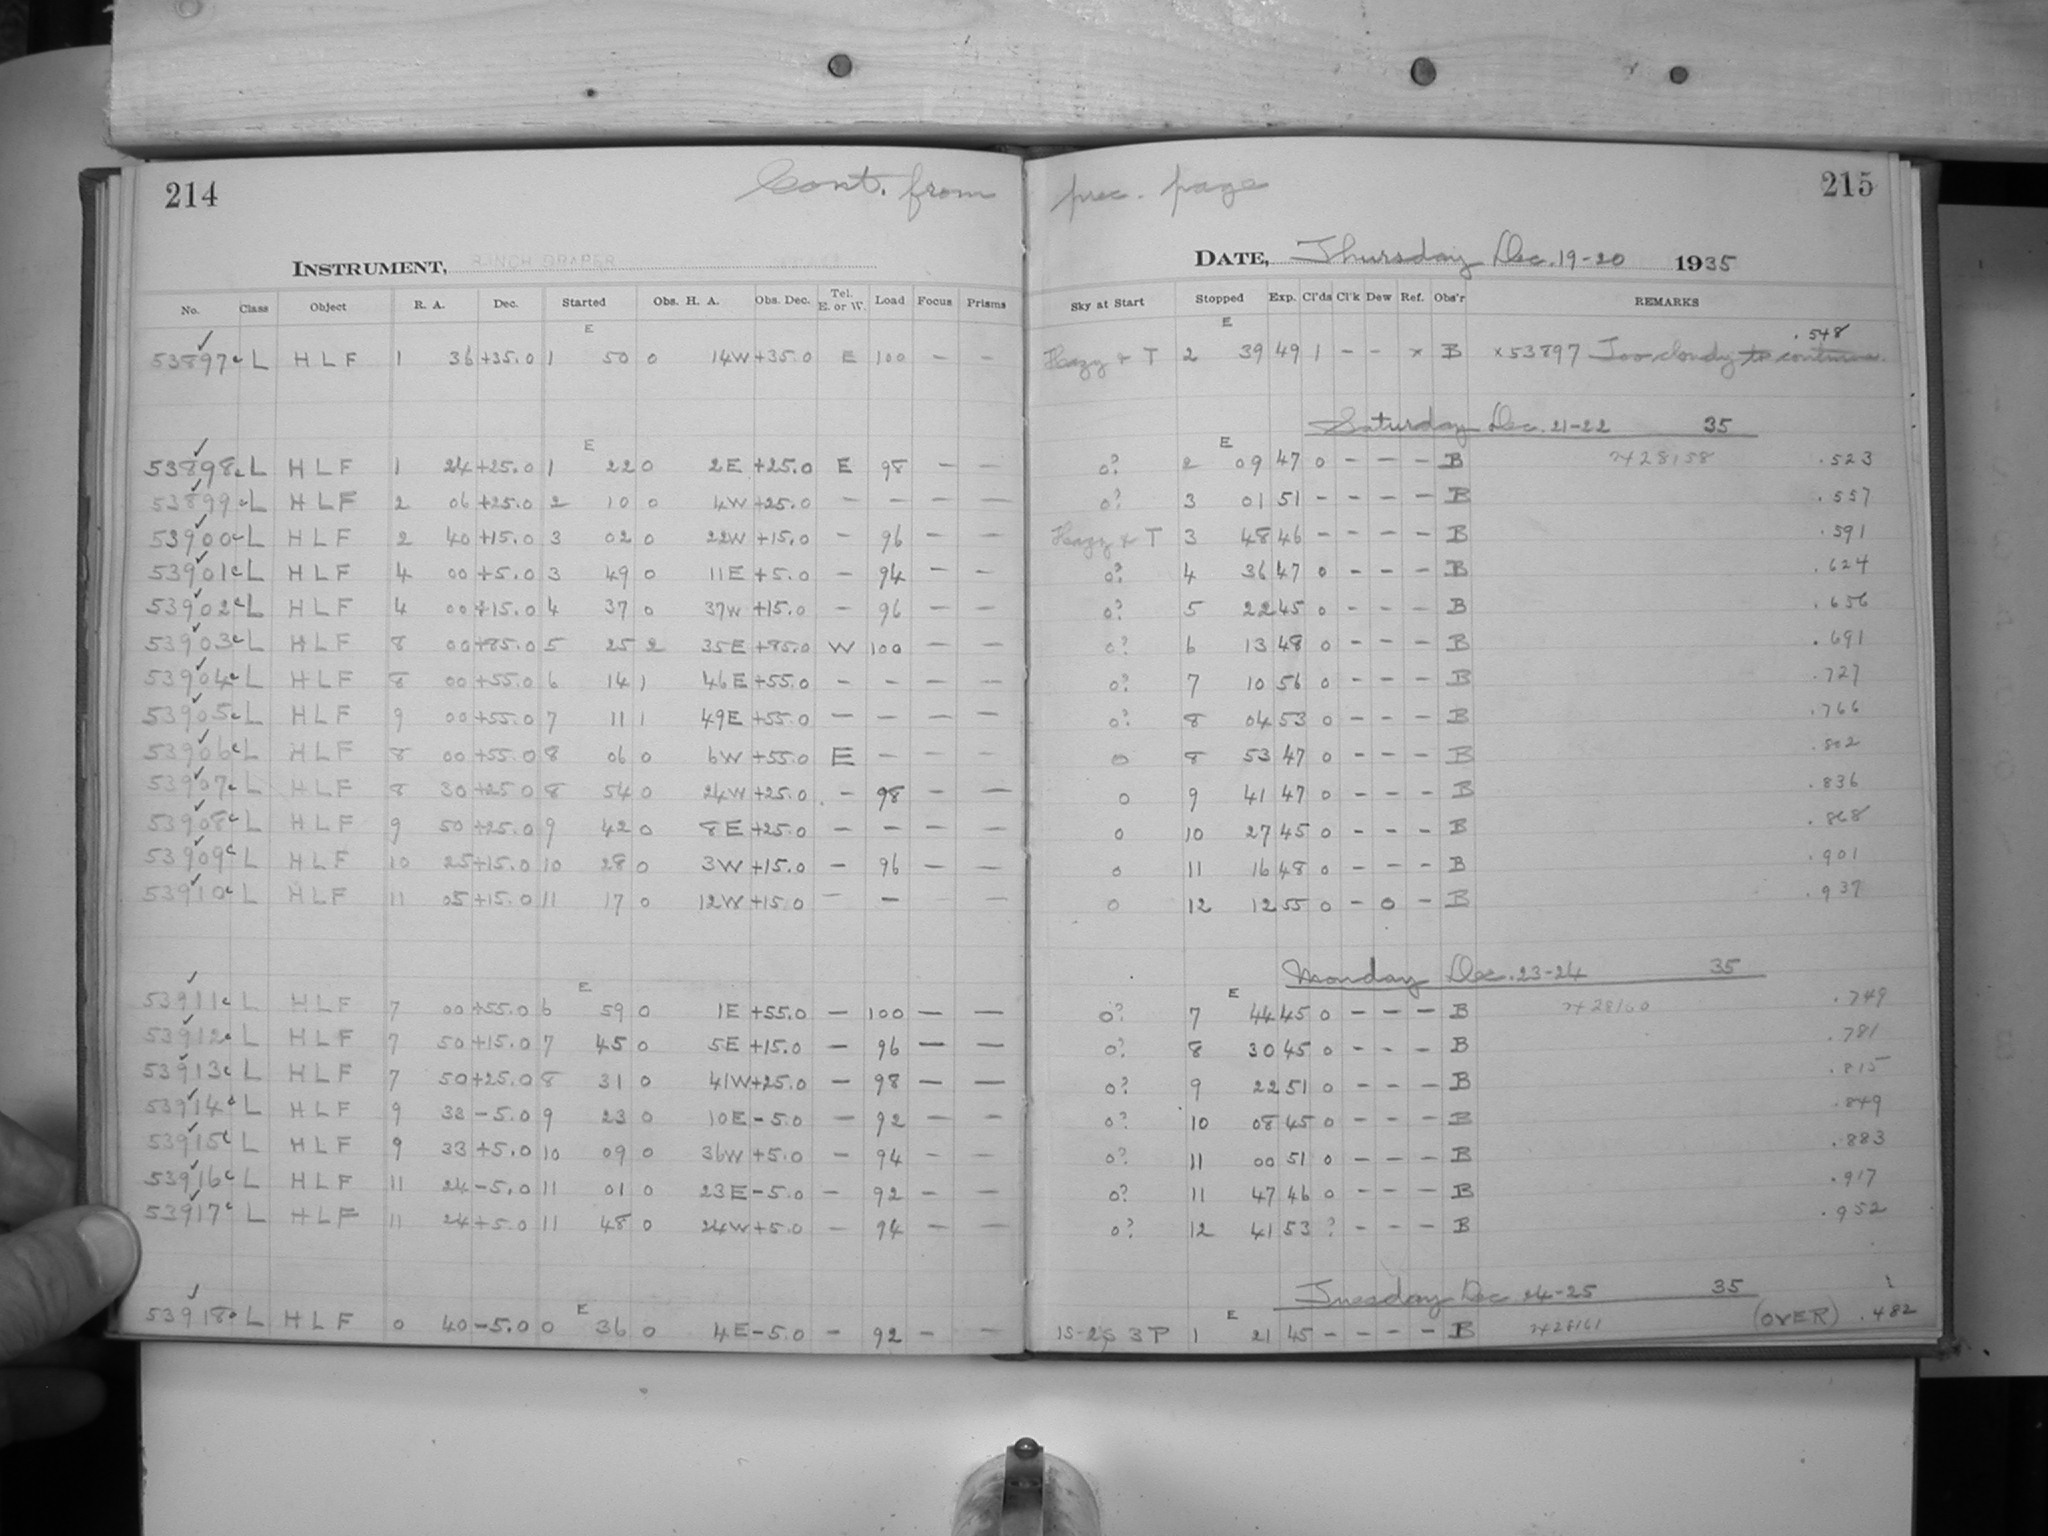 214 Cont. from prec. page 215
INSTRUMENT, 8-INCH DRAPER DATE, Thursday Dec. 19-20 1935
No. Class Object R. A. Dec. Started Obs. H. A. Obs. Dec. Tel. E. or W. Load Focus Prisms Sky at Start Stopped Exp. Cl'ds Cl'k Dew Ref. Obs'r REMARKS
E E .548
53897c L H L F 1 36 +35.0 1 50 0 14W +35.0 E 100 – – Hazy & T 2 39 49 1 – – x B x 53897 Too cloudy to continue
Saturday Dec. 21-22 35
E E
53898c L H L F 1 24 +25.0 1 22 0 2E +25.0 E 98 – – 0? 2 09 47 0 – – – B 28158 .523
53899c L H L F 2 06 +25.0 2 10 0 4W +25.0 – – – – 0? 3 01 51 – – – – B .557
53900c L H L F 2 40 +15.0 3 02 0 22W +15.0 – 96 – – Hazy & T 3 48 46 – – – – B .591
53901c L H L F 4 00 +5.0 3 49 0 11E +5.0 – 94 – – 0? 4 36 47 0 – – – B .624
53902c L H L F 4 00 +15.0 4 37 0 37W +15.0 – 96 – – 0? 5 22 45 0 – – – B .656
53903c L H L F 8 00 +85.0 5 25 2 35E +85.0 W 100 – – 0? 6 13 48 0 – – – B .691
53904c L H L F 8 00 +55.0 6 14 1 46E +55.0 – – – – 0? 7 10 56 0 – – – B .727
53905c L H L F 9 00 +55.0 7 11 1 49E +55.0 – – – – 0? 8 04 53 0 – – – B .766
53906c L H L F 8 00 +55.0 8 06 0 6W +55.0 E – – – 0 8 53 47 0 – – – B .802
53907c L H L F 8 30 +25.0 8 54 0 24W +25.0 – 98 – – 0 9 41 47 0 – – – B .836
53908c L H L F 9 50 +25.0 9 42 0 8E +25.0 – – – – 0 10 27 45 0 – – – B .868
53909c L H L F 10 25 +15.0 10 28 0 3W +15.0 – 96 – – 0 11 16 48 0 – – – B .901
53910c L H L F 11 05 +15.0 11 17 0 12W +15.0 – – – – 0 12 12 55 0 – 0 – B .937
Monday Dec. 23-24 35
E E
53911c L H L F 7 00 +55.0 6 59 0 1E +55.0 – 100 – – 0? 7 44 45 0 – – – B 28160 .749
53912c L H L F 7 50 +15.0 7 45 0 5E +15.0 – 96 – – 0? 8 30 45 0 – – – B .781
53913c L H L F 7 50 +25.0 8 31 0 41W +25.0 – 98 – – 0? 9 22 51 0 – – – B .815
53914c L H L F 9 33 –5.0 9 23 0 10E –5.0 – 92 – – 0? 10 08 45 0 – – – B .849
53915c L H L F 9 33 +5.0 10 09 0 36W +5.0 – 94 – – 0? 11 00 51 0 – – – B .883
53916c L H L F 11 24 –5.0 11 01 0 23E –5.0 – 92 – – 0? 11 47 46 0 – – – B .917
53917c L H L F 11 24 +5.0 11 48 0 24W +5.0 – 94 – – 0? 12 41 53 ? – – – B .952
Tuesday Dec. 24-25 35
E E
53918c L H L F 0 40 –5.0 0 36 0 4E –5.0 – 92 – – 1S-2S 3P 1 21 45 – – – – B 28161 (OVER) .482